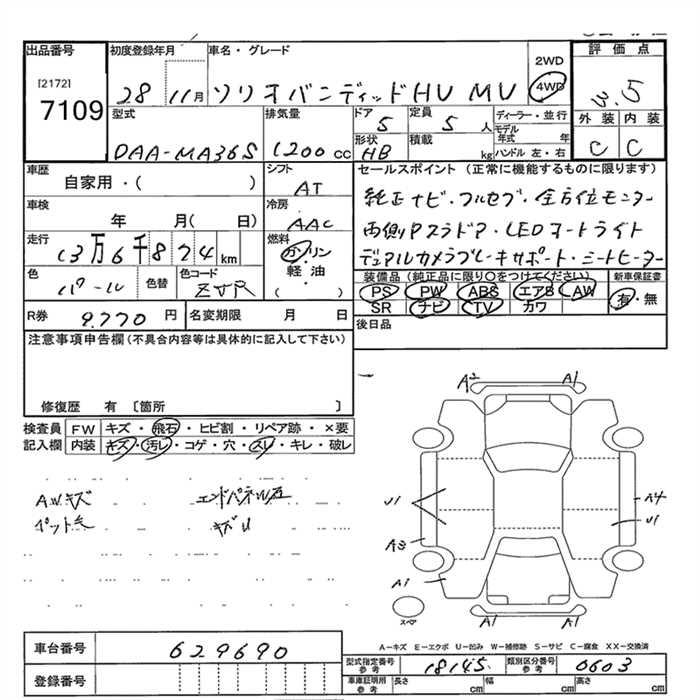 出品番号 初度登録年月 車名・グレード 2WD 評価点
[2172]
7109
28 11月 ソリオバンディッドHV MV 4WD 3.5
型式 排気量 ドア 定員 ディーラー・並行 外装 内装
5 5人 モデル年式 年
DAA-MA36S 1200cc 形状 HB 積載 kg ハンドル 左・右 C C
車歴 シフト セールスポイント (正常に機能するものに限ります)
自家用・( ) AT 純正ナビ・フルセグ・全方位モニター
車検 冷房
年 月( 日) AAC 両側Pスラドア・LEDオートライト
走行 燃料
13万6千874km ガソリン デュアルカメラブレーキサポート・シートヒーター
軽油
( )
色 色替 色コード 装備品(純正品に限り○をつけてください) 新車保証書
パール ZVR PS PW ABS エアB AW 有・無
SR ナビ TV カワ
R券 9.770円 名変期限 月 日 後日品
注意事項申告欄(不具合内容等は具体的に記入して下さい)
修復歴 有 〔箇所 〕
検査員 FW キズ・飛石・ヒビ割・リペア跡・×要
記入欄 内装 キズ・汚レ・コゲ・穴・スレ・キレ・破レ
A2 A1
A.Wキズ エンドパネル
ペット キズU
U1 A4
U1
A3
A1
スペア A1 A1
A−キズ E−エクボ U−凹み W−補修跡 S−サビ C−腐食 XX−交換済
車台番号 629690 型式指定番号 参考 18145 類別区分番号 参考 0603
登録番号 車庫証明用 参考 長さ cm 幅 cm 高さ cm